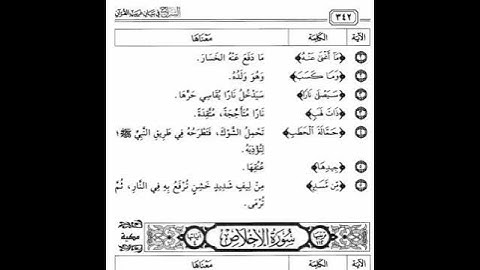 ٣٤٢
السراج في بيان غريب القرآن
الآية الكلمة معناها
٢ ﴿مَا أَغْنَىٰ عَنْهُ﴾ مَا دَفَعَ عَنْهُ الخَسَارَ.
٢ ﴿وَمَا كَسَبَ﴾ وَهُوَ وَلَدُهُ.
٣ ﴿سَيَصْلَىٰ نَارًا﴾ سَيَدْخُلُ نَارًا يُقَاسِي حَرَّهَا.
٣ ﴿ذَاتَ لَهَبٍ﴾ نَارًا مُتَأَجِّجَةً، مُتَّقِدَةً.
٤ ﴿حَمَّالَةَ الْحَطَبِ﴾ تَحْمِلُ الشَّوْكَ، فَتَطْرَحُهُ فِي طَرِيقِ النَّبِيِّ ﷺ؛
لِتُؤْذِيَهُ.
٥ ﴿جِيدِهَا﴾ عُنُقِهَا.
٥ ﴿مِّن مَّسَدٍ﴾ مِنْ لِيفٍ شَدِيدٍ خَشِنٍ تُرْفَعُ بِهِ فِي النَّارِ، ثُمَّ
تُرْمَى.
سُورَةُ الإِخْلَاصِ
مكية
الآية الكلمة معناها